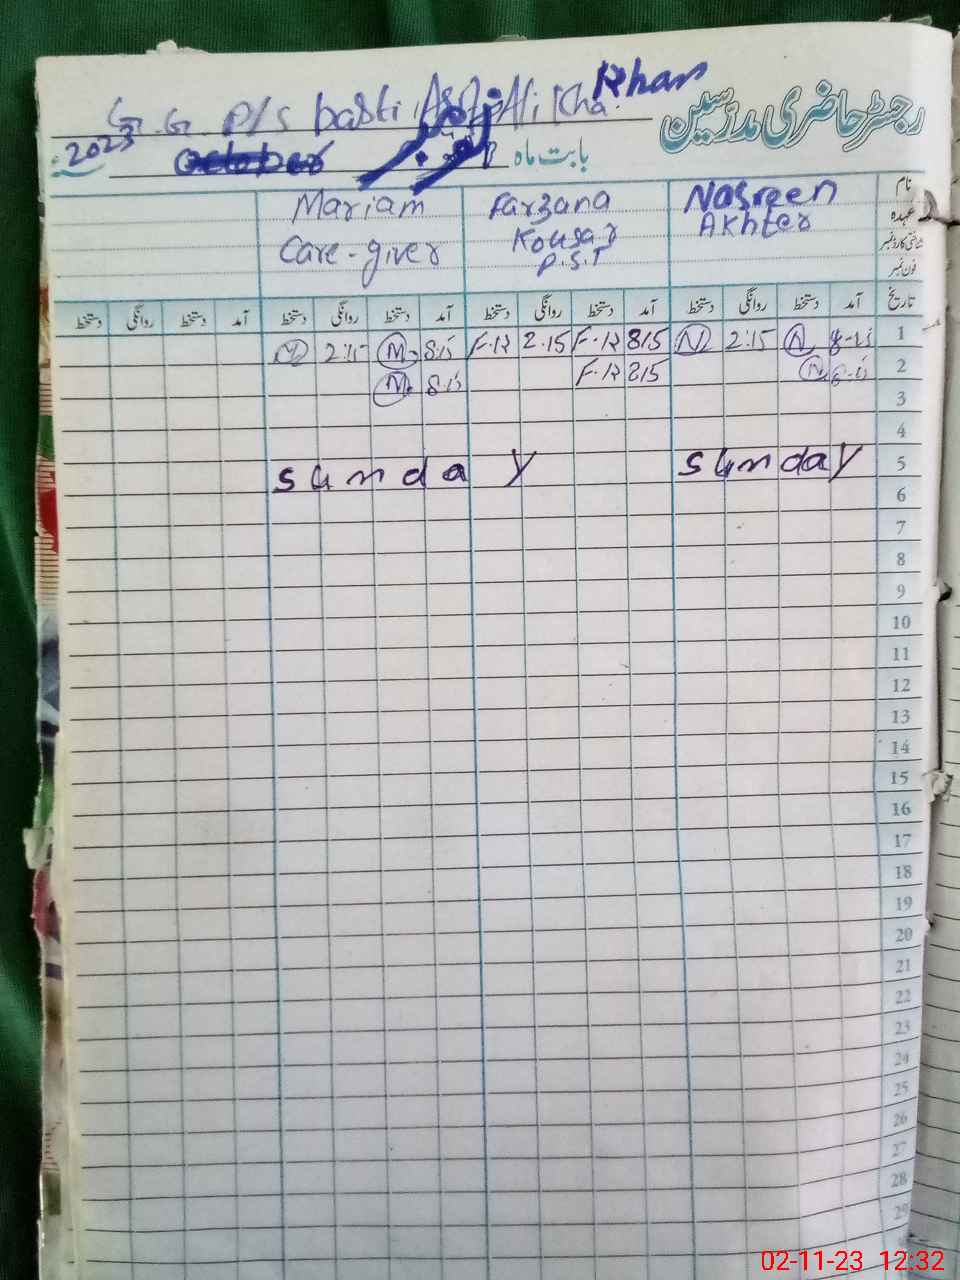 G. G. P/S basti Ali Kha Khan
رجسٹر حاضری مدرسین
2023
بابت ماہ
نام
Nasreen
Farzana
Mariam
عہدہ
Akhter
Kousar
Care-giver
شناختی کارڈ نمبر
P.S.T
فون نمبر
تاریخ آمد دستخط روانگی دستخط آمد دستخط روانگی دستخط آمد دستخط روانگی دستخط آمد دستخط روانگی دستخط
1 N 2:15 N 815 F.K 2.15 F.K 8:15 M 2:15
2 N 815 F.K 8:15 M
3
4
5 sunday sunday
6
7
8
9
10
11
12
13
14
15
16
17
18
19
20
21
22
23
24
25
26
27
28
29
02-11-23 12:32